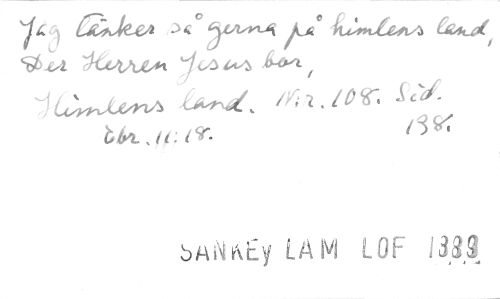 Jag tänker så gerna på himlens land,
Der Herren Jesus bor,
Himlens land. N:r. 108. Sid.
Ebr. 11:18. 198.
SANKEY LAM LOF 1889